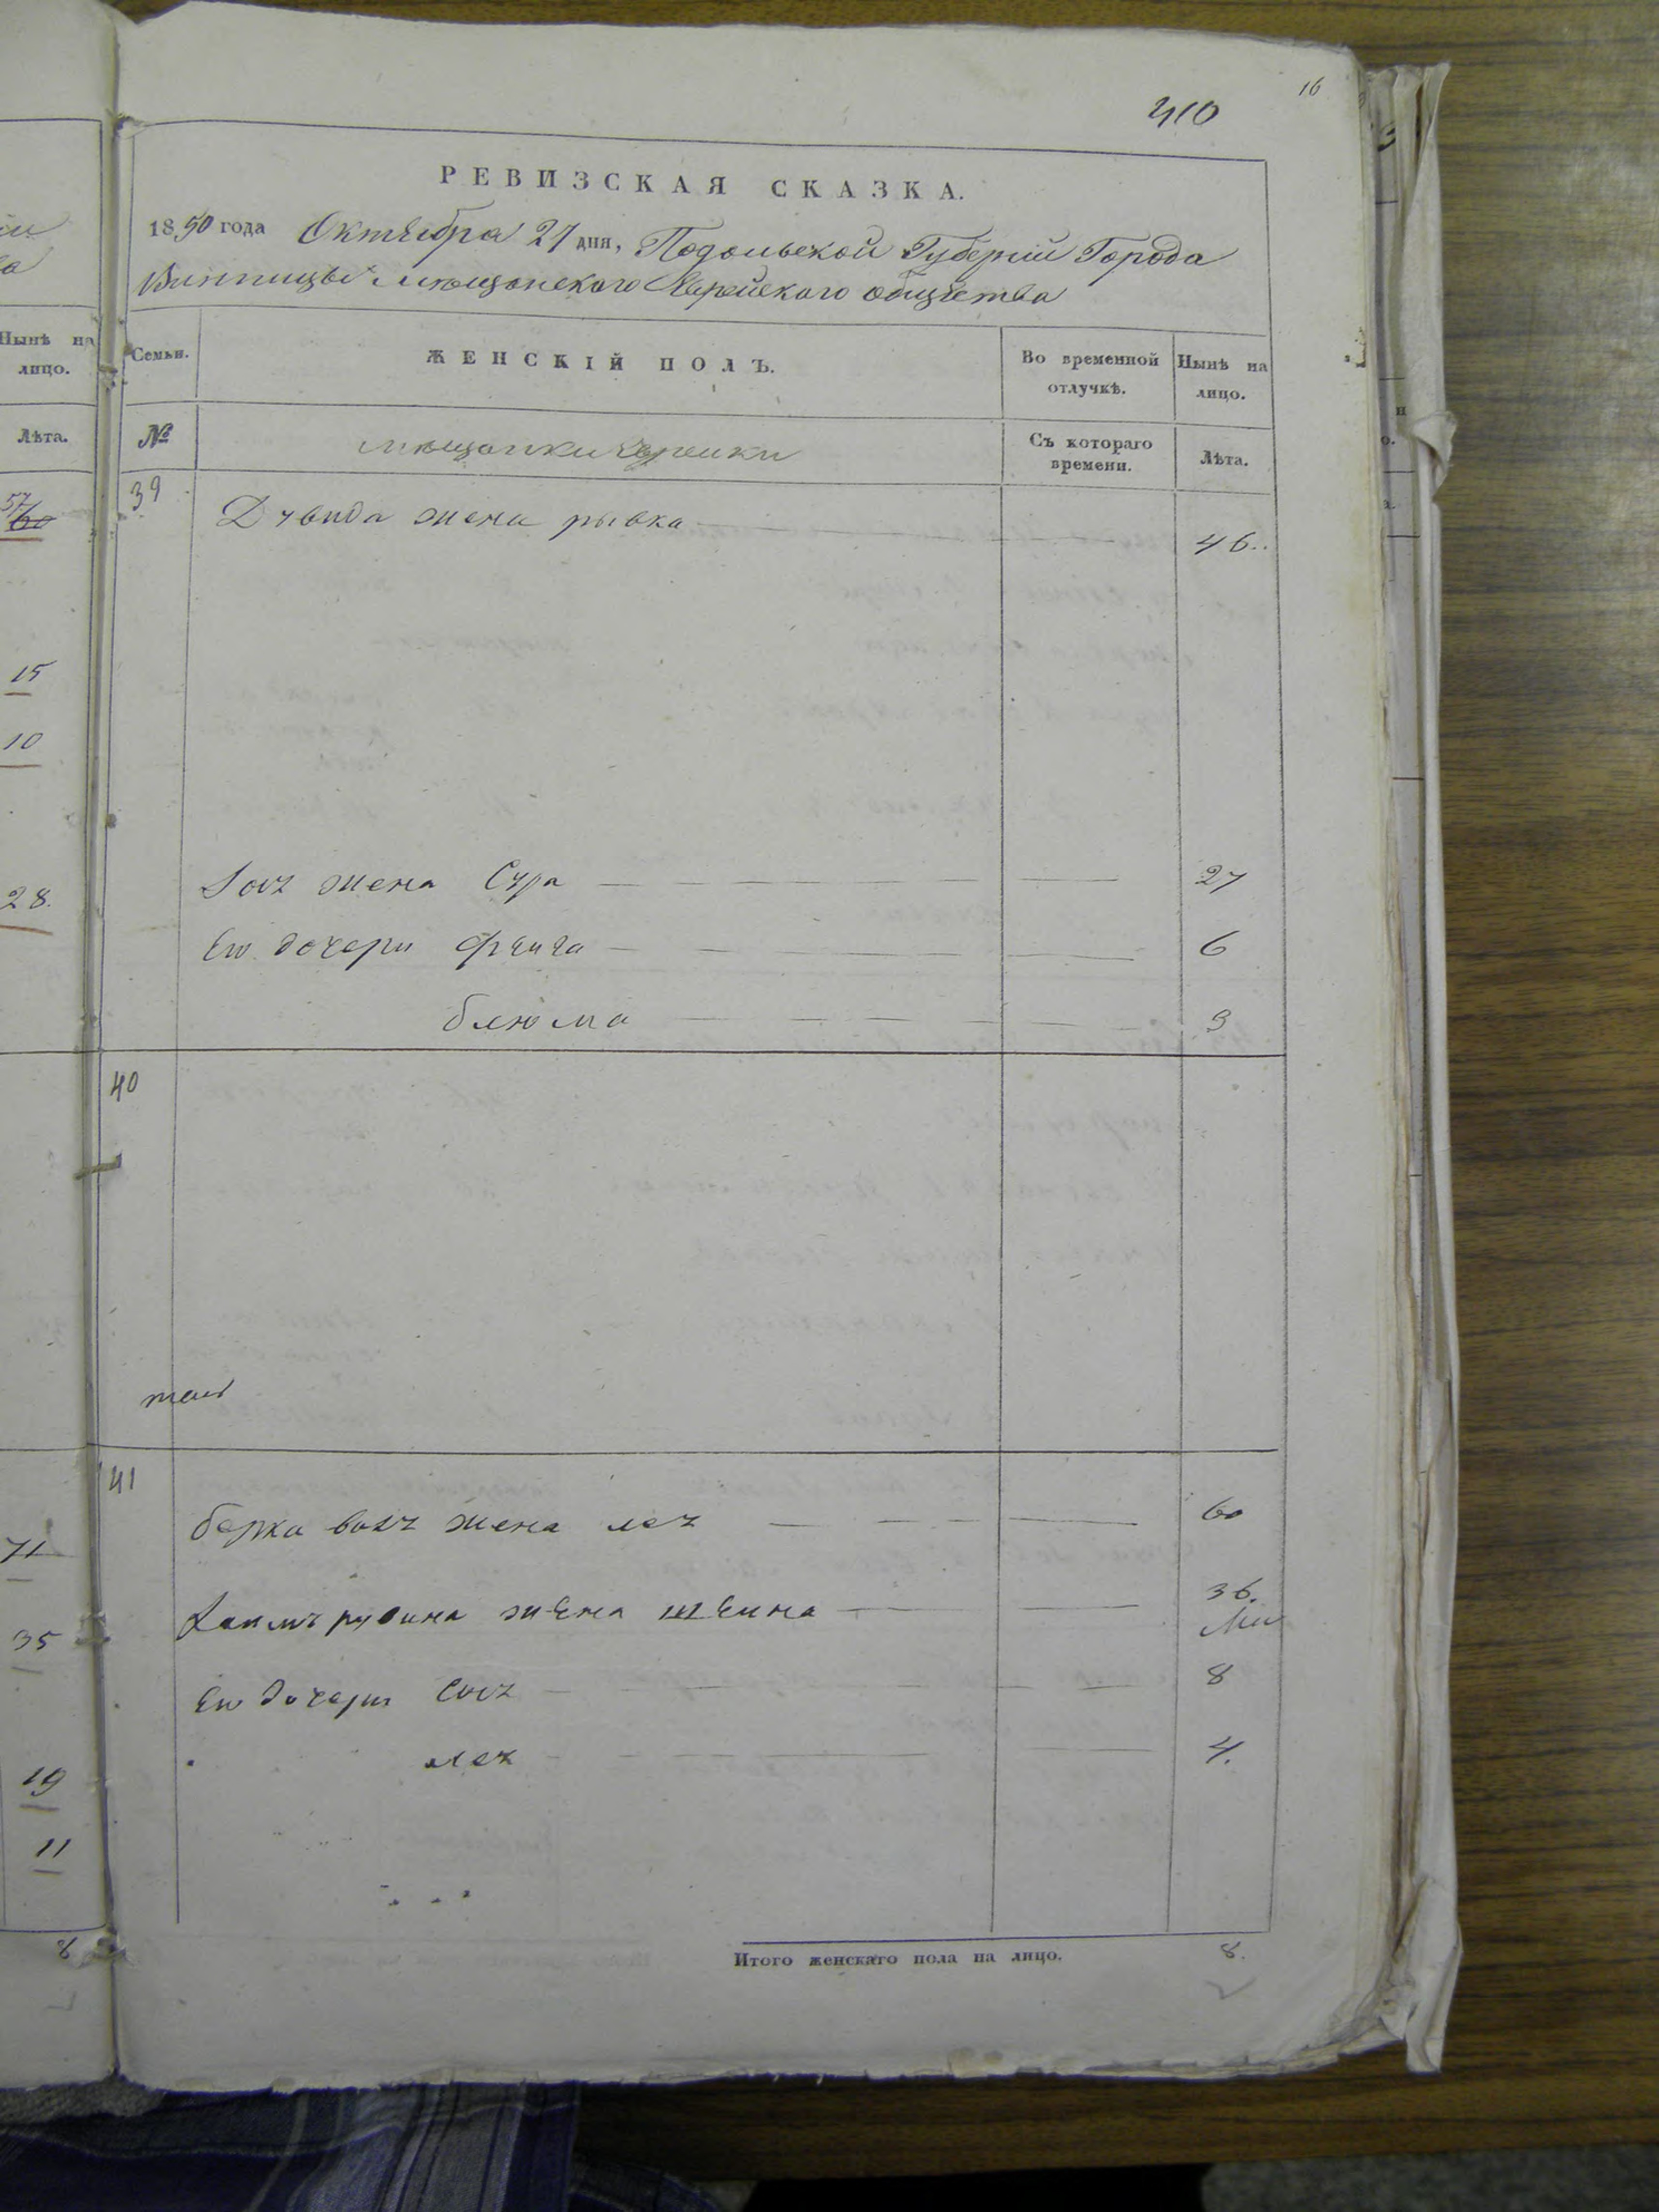 16
410
РЕВИЗСКАЯ СКАЗКА.
1850 года Октября 27 дня, Подольской Губерніи Города
Винницы мещанского Еврейского общества
Нынѣ на лицо.
Семьи.
ЖЕНСКІЙ ПОЛЪ.
Во временной отлучкѣ.
Нынѣ на лицо.
Лѣта.
№
мещанки Еврейки
Съ котораго времени.
Лѣта.
57
60
39
Дувида жена рывка 46
15
10
28
жена Сура 27
Ею дочери фейга 6
блюма 3
40
41
71
берка жена лея 60
35
Хаимъ рувина жена шейна 36
Ею дочери Сося 8
лея 4.
19
11
8
Итого женскаго пола на лицо. 8.